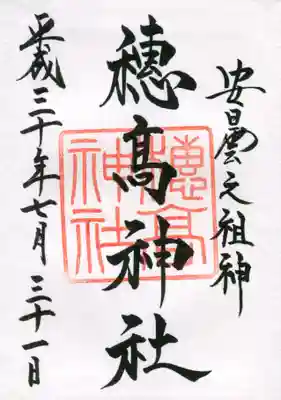 安曇之祖神
穂髙神社
平成三十年七月三十一日
穗高
神社